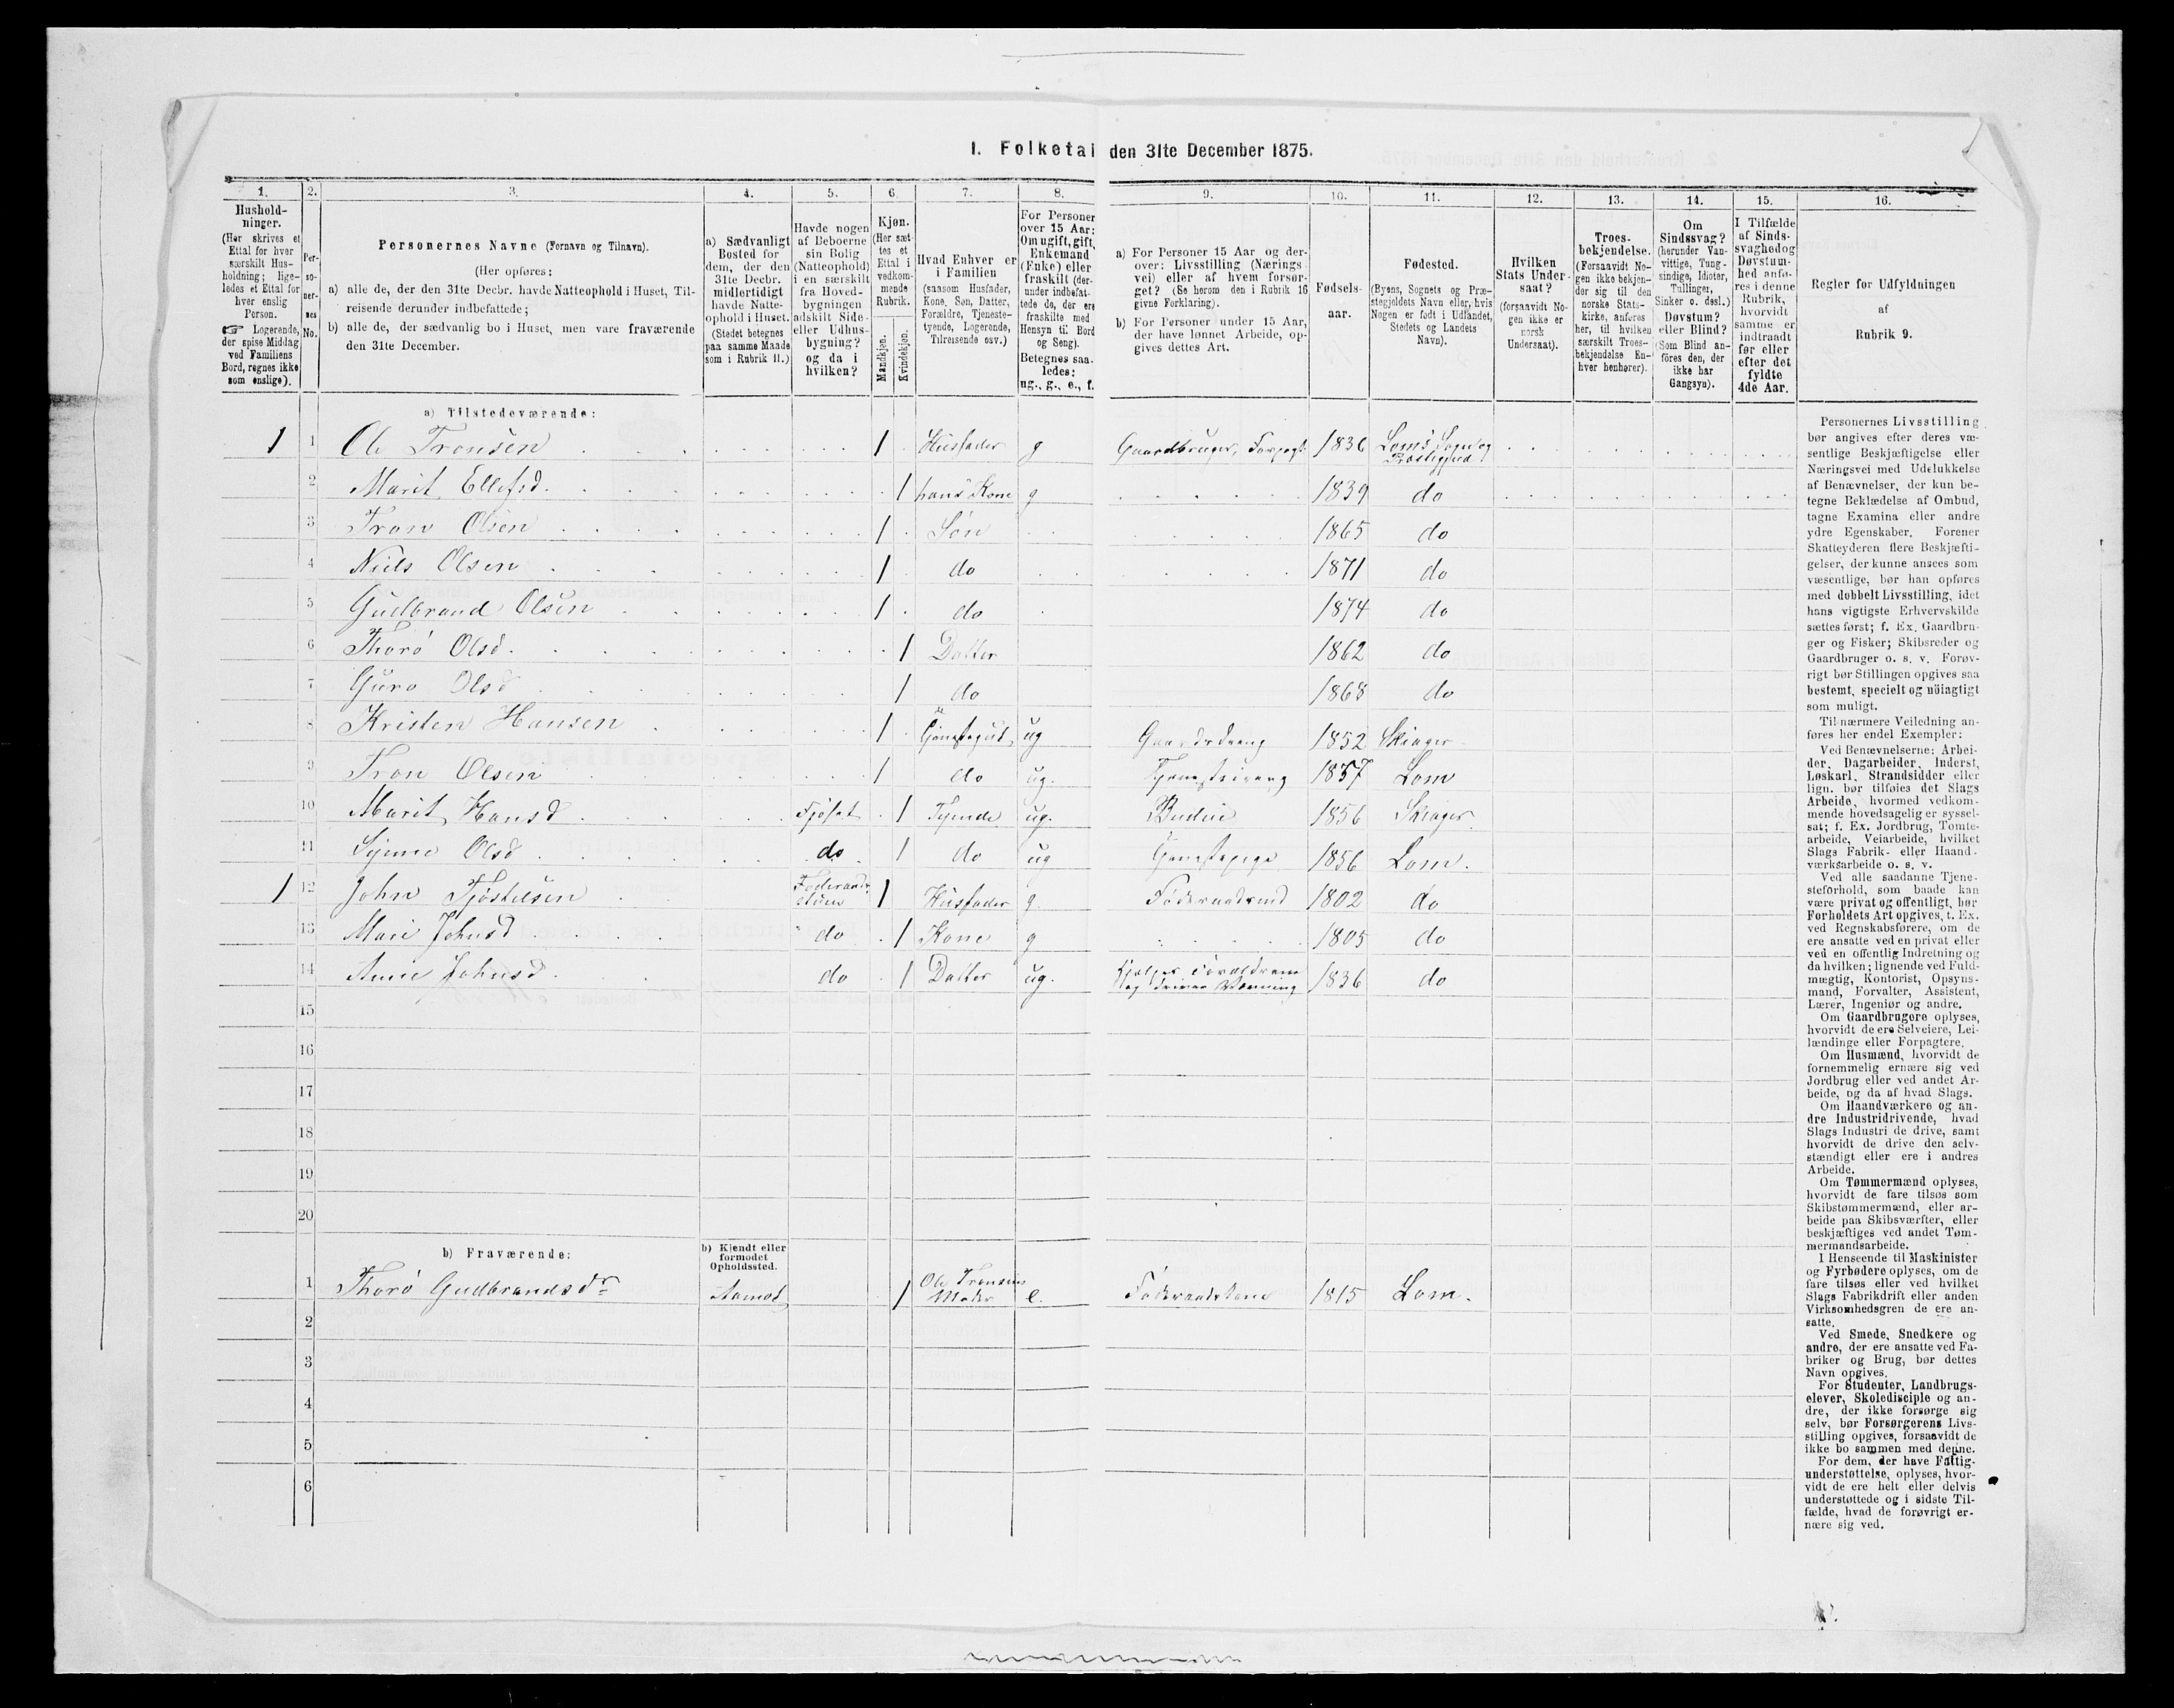 I. Folketal den 31te December 1875.
1. 2. 3. 4. 5. 6. 7. 8. 9. 10. 11. 12. 13. 14. 15. 16.
Hushold-
ninger.
(Her skrives et
Ettal for hver
særskilt Hus-
holdning; lige-
ledes et Ettal for
hver enslig
Person.
☞ Logerende,
der spise Middag
ved Familiens
Bord, regnes ikke
som enslige).
Per-
so-
ner-
nes
No.
Personernes Navne (Fornavn og Tilnavn).
(Her opføres:
a) alle de, der den 31te Decbr. havde Natteophold i Huset, Til-
reisende derunder indbefattede;
b) alle de, der sædvanlig bo i Huset, men vare fraværende
den 31te December.
a) Sædvanligt
Bosted for
dem, der den
31te Decbr.
midlertidigt
havde Natte-
ophold i Huset.
(Stedet betegnes
paa samme Maade
som i Rubrik 11.)
Havde nogen
af Beboerne
sin Bolig
(Natteophold)
i en særskilt
fra Hoved-
bygningen
adskilt Side-
eller Udhus-
bygning?
og da i
hvilken?
Kjøn.
(Her sæt-
tes et
Ettal i
vedkom-
mende
Rubrik.
Mandkjøn.
Kvindekjøn.
Hvad Enhver er
i Familien
(saasom Husfader,
Kone, Søn, Datter,
Forældre, Tjeneste-
tyende, Logerende,
Tilreisende osv.)
For Personer
over 15 Aar:
Om ugift, gift,
Enkemand
(Enke) eller
fraskilt (der-
under indbefat-
tede de, der ere
fraskilte med
Hensyn til Bord
og Seng).
Betegnes saa-
ledes:
ug., g., e., f.
a) For Personer 15 Aar og der-
over: Livsstilling (Nærings-
vei) eller af hvem forsør-
get? (Se herom den i Rubrik 16
givne Forklaring).
b) For Personer under 15 Aar,
der have lønnet Arbeide, op-
gives dettes Art.
Fødsels-
aar.
Fødested.
(Byens, Sognets og Præ-
stegjeldets Navn eller, hvis
Nogen er født i Udlandet,
Stedets og Landets
Navn).
Hvilken
Stats Under-
saat?
(forsaavidt No-
gen ikke er
norsk
Undersaat).
Troes-
bekjendelse.
(Forsaavidt No-
gen ikke bekjen-
der sig til den
norske Stats-
kirke, anføres
her, til hvilken
særskilt Troes-
bekjendelse En-
hver henhører).
Om
Sindssvag?
(herunder Van-
vittige, Tung-
sindige, Idioter,
Tullinger,
Sinker o. desl.)
Døvstum?
eller Blind?
(Som Blind an-
føres den, der
ikke har
Gangsyn).
I Tilfælde
af Sinds-
svaghed og
Døvstum-
hed anfø-
res i denne
Rubrik,
hvorvidt
samme er
indtraadt
før eller
efter det
fyldte
4de Aar.
Regler for Udfyldningen
af
Rubrik 9.
a) Tilstedeværende:
1 1 Ole Tronsen 1 Husfader g Gaardbruger, Forpagt. 1836 Lom's Sogn og Præstegjeld
2 Marit Ellefsd. 1 hans Kone g 1839 do
3 Tron Olsen 1 Søn 1865 do
4 Niels Olsen 1 do 1871 do
5 Gudbrand Olsen 1 do 1874 do
6 Thorø Olsd. 1 Datter 1862 do
7 Guro Olsd 1 do 1868 do
8 Kristen Hansen 1 Tjenestegut ug Gaardsdreng 1852 Skiager
9 Tron Olsen 1 do ug. Tjenestedreng 1857 Lom
10 Marit Hansd Fjøset 1 Tyende ug. Budeie 1856 Skiager
11 Synne Olsd do 1 do ug Tjenestepige 1856 Lom.
1 12 John Tjøstelsen Føderaads stuen 1 Husfader g. Føderaadsmd 1802 do
13 Mari Johnsd do 1 Kone g 1805 do
14 Anne Johnsd. do 1 Datter ug. Hjelper Forældrene og driver Vævning 1836 do
15
16
17
18
19
20
b) Fraværende:
b) Kjendt eller
formodet
Opholdssted.
1 Thorø Gudbrandsdr Aamot 1 Ole Tronsens Moder e. Føderaadskone 1815 Lom.
2
3
4
5
6
Personernes Livsstilling
bør angives efter deres væ-
sentlige Beskjæftigelse eller
Næringsvei med Udelukkelse
af Benævnelser, der kun be-
tegne Beklædelse af Ombud,
tagne Examina eller andre
ydre Egenskaber. Forener
Skatteyderen flere Beskjæfti-
gelser, der kunne ansees som
væsentlige, bør han opføres
med dobbelt Livsstilling, idet
hans vigtigste Erhvervskilde
sættes først; f. Ex. Gaardbru-
ger og Fisker; Skibsreder og
Gaardbruger o. s. v. Forøv-
rigt bør Stillingen opgives saa
bestemt, specielt og nöiagtigt
som muligt.
Til nærmere Veiledning an-
føres her endel Exempler:
Ved Benævnelserne: Arbei-
der, Dagarbeider, Inderst,
Løskarl, Strandsidder eller
lign. bør tilføies det Slags
Arbeide, hvormed vedkom-
mende hovedsagelig er syssel-
sat; f. Ex. Jordbrug, Tomte-
arbeide, Veiarbeide, hvilket
Slags Fabrik- eller Haand-
værksarbeide o. s. v.
Ved alle saadanne Tjene-
steforhold, som baade kan
være privat og offentligt, bør
Forholdets Art opgives, t. Ex.
ved Regnskabsførere, om de
ere ansatte ved en privat eller
ved en offentlig Indretning og
da hvilken; lignende ved Fuld-
mægtig, Kontorist, Opsyns-
mand, Forvalter, Assistent,
Lærer, Ingeniør og andre.
Om Gaardbrugere oplyses,
hvorvidt de ere Selveiere, Lei-
lændinge eller Forpagtere.
Om Husmænd, hvorvidt de
fornemmelig ernære sig ved
Jordbrug eller ved andet Ar-
beide, og da af hvad Slags.
Om Haandværkere og an-
dre Industridrivende, hvad
Slags Industri de drive, samt
hvorvidt de drive den selv-
stændigt eller ere i andres
Arbeide.
Om Tømmermænd oplyses,
hvorvidt de fare tilsøs som
Skibstømmermænd, eller ar-
beide paa Skibsværfter, eller
beskjæftiges ved andet Tøm-
mermandsarbeide.
I Henseende til Maskinister
og Fyrbødere oplyses, om de
fare tilsøs eller ved hvilket
Slags Fabrikdrift eller anden
Virksomhedsgren de ere an-
satte.
Ved Smede, Snedkere og
andre, der ere ansatte ved Fa-
briker og Brug, bør dettes
Navn opgives.
For Studenter, Landbrugs-
elever, Skoledisciple og an-
dre, der ikke forsørge sig
selv, bør Forsørgerens Livs-
stilling opgives, forsaavidt de
ikke bo sammen med denne.
For dem, der have Fattig-
understøttelse, oplyses, hvor-
vidt de ere helt eller delvis
understøttede og i sidste Til-
fælde, hvad de forøvrigt er-
nære sig ved.